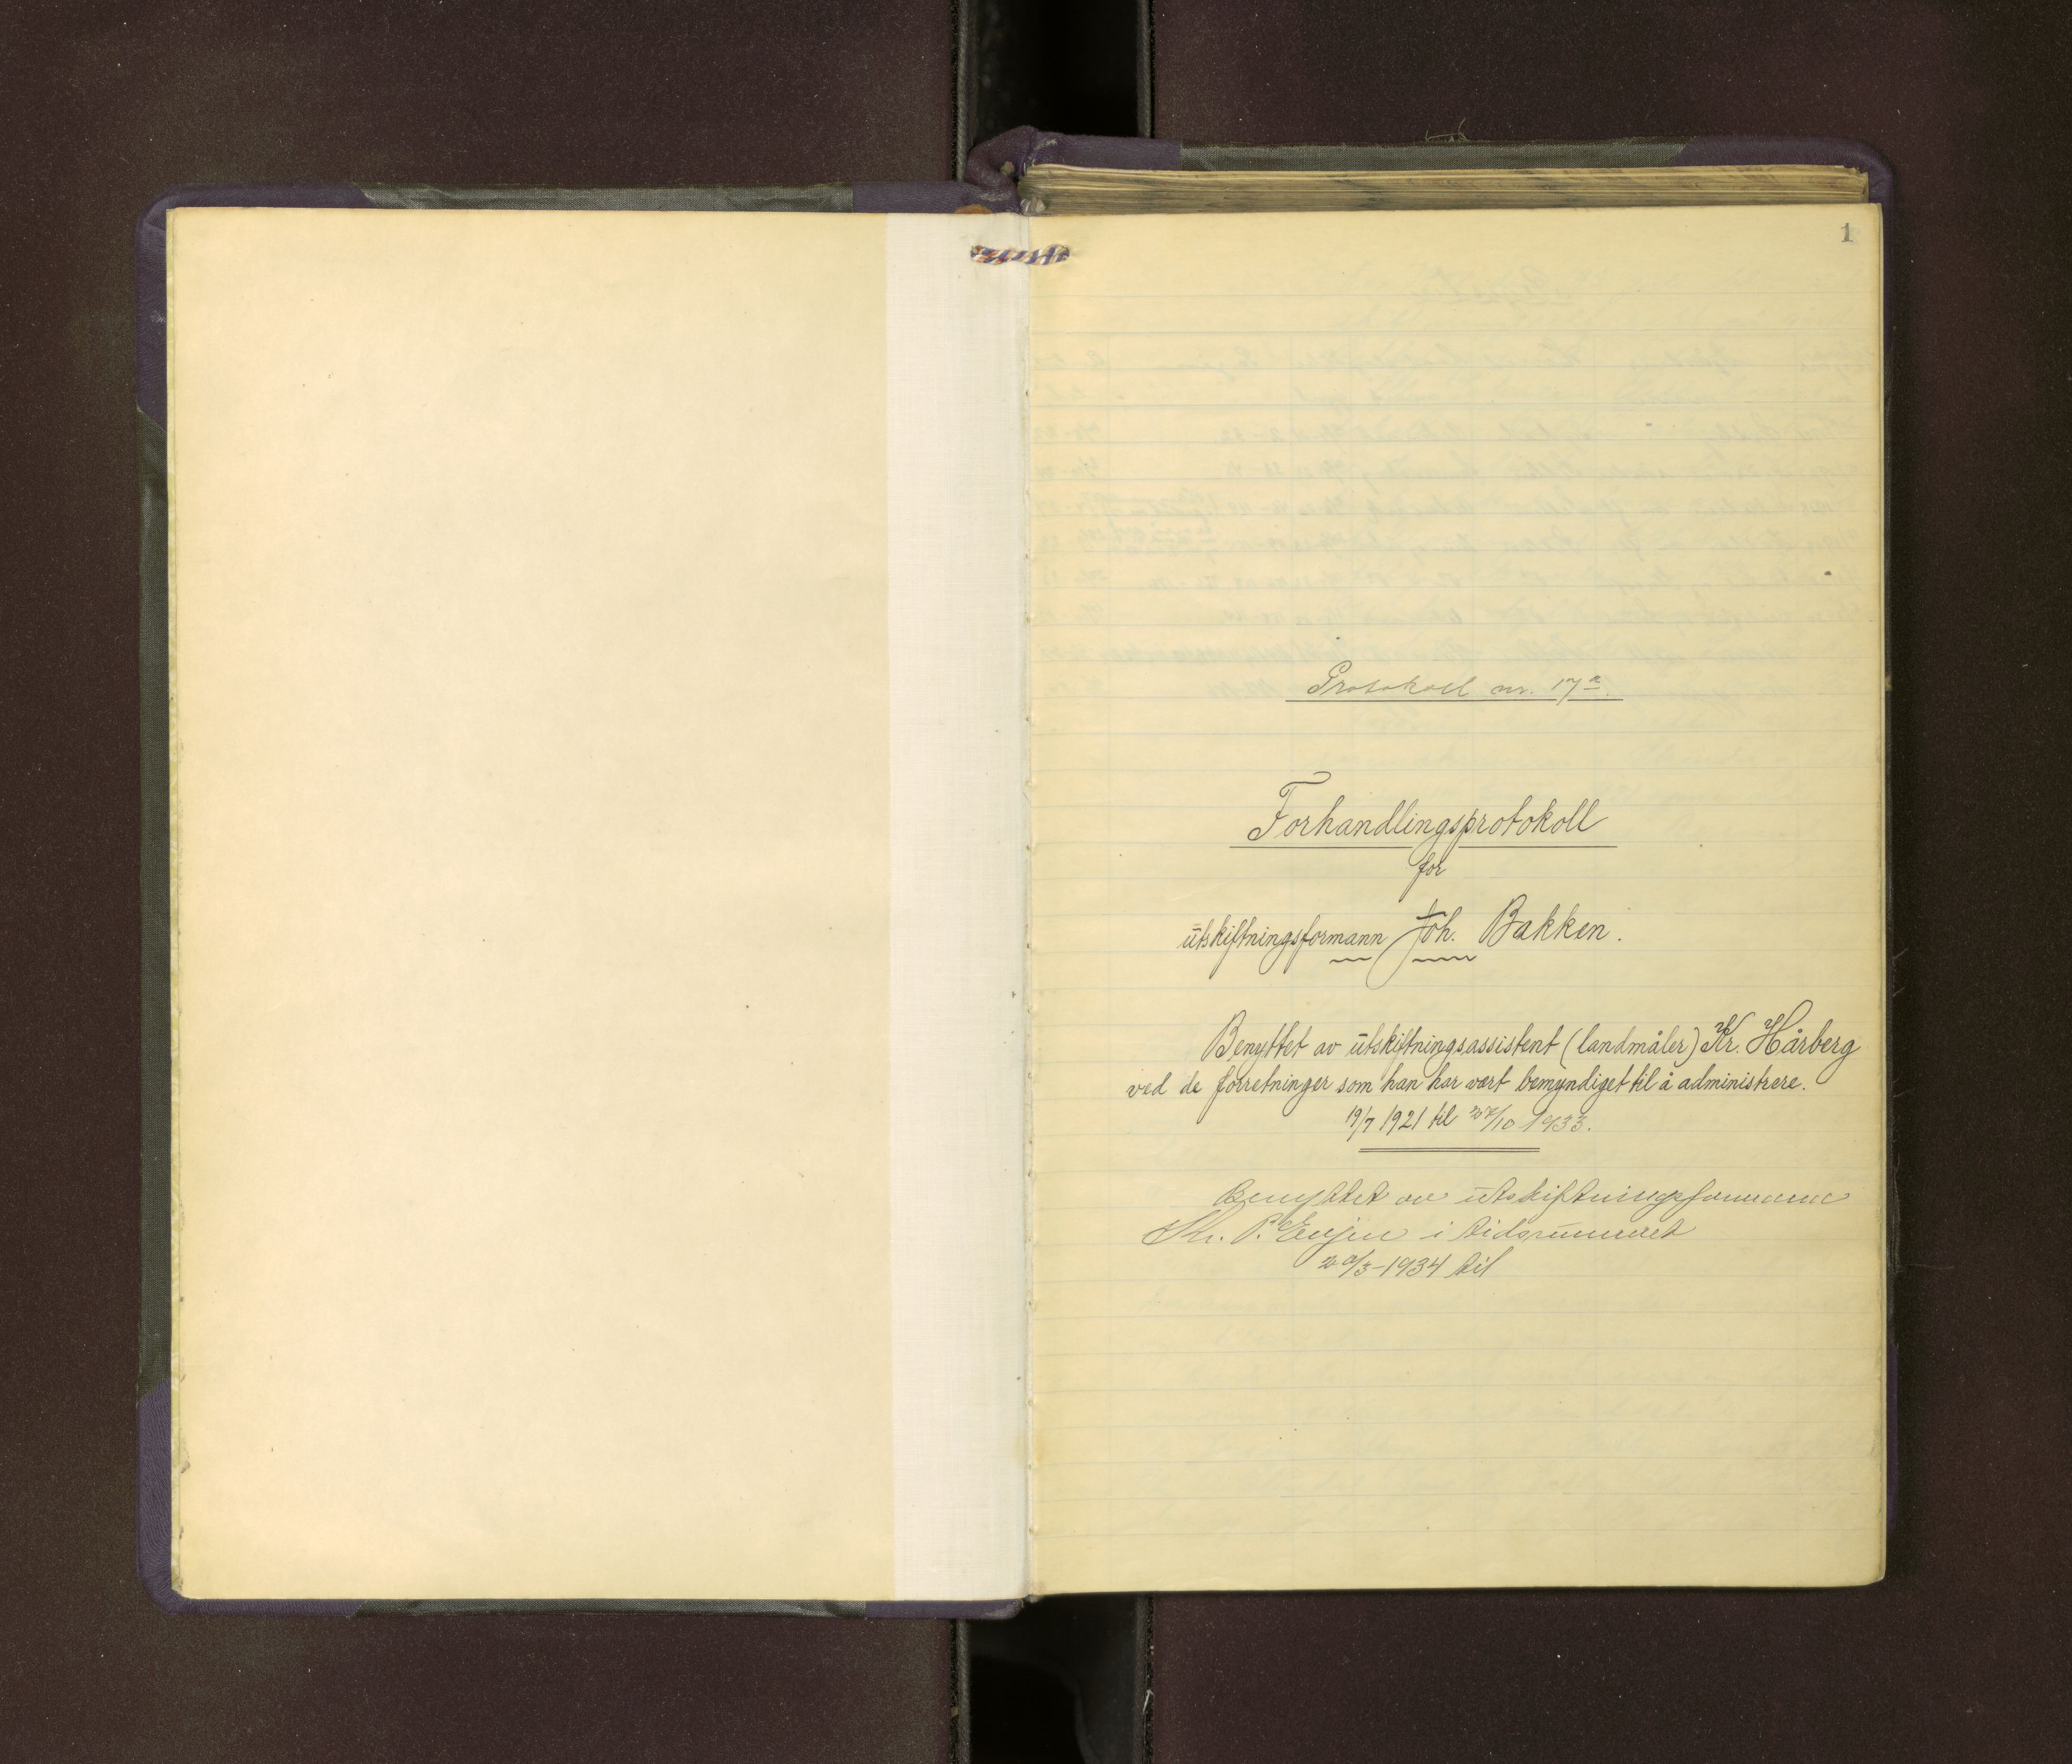 1
Protokoll nr. 17a.
Forhandlingsprotokoll
for
utskiftningsformann Joh. Bakken.
Benyttet av utskiftningsassistent (landmåler) Kr. Hårberg
ved de forretninger som han har vært bemyndiget til å administrere.
19/7 1921 til 27/10 1933.
Benyttet av utskiftningsformann
P. i tidsrummet
20/3-1934 til